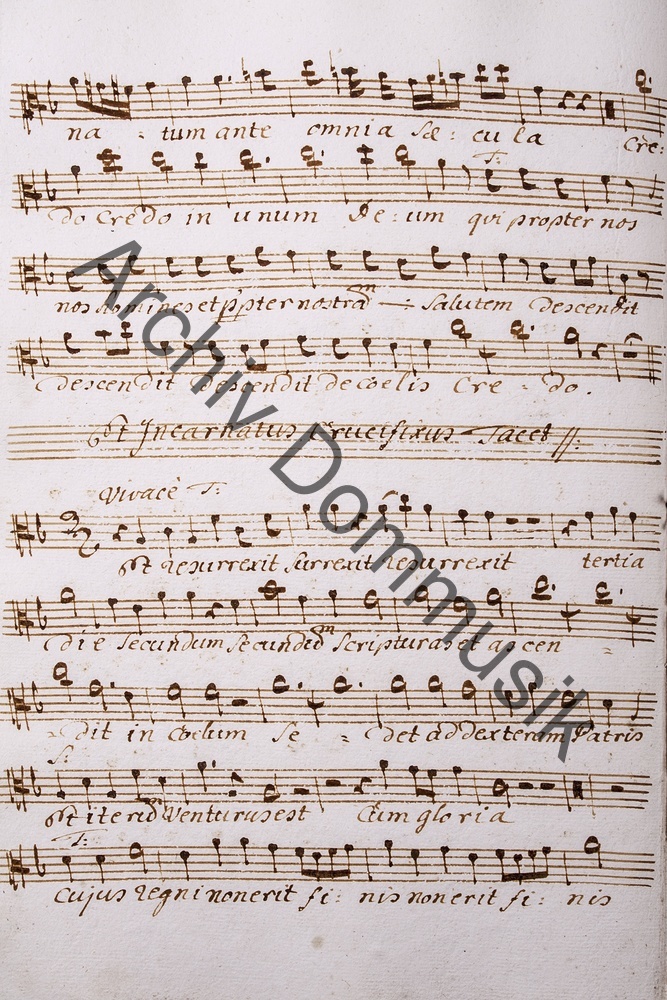 na - tum ante omnia sæ: cu la Cre:
T:
do Credo in unum De: um qui propter nos
nos homines et ppter nostrã salutem Descendit
descendit Descendit de Coelis Cre - do.
Et Incarnatus Crucifixus Tacet
Vivacè T:
Et resurrexit surrexit resurrexit tertia
die secundum secundũ scripturas et ascen -
- dit in Coelum Se - det ad dexteram Patris
S:
Et iterũ Venturus est Cum gloria
T:
Cujus regni non erit fi: nis non erit fi: nis
Archiv Dommusik